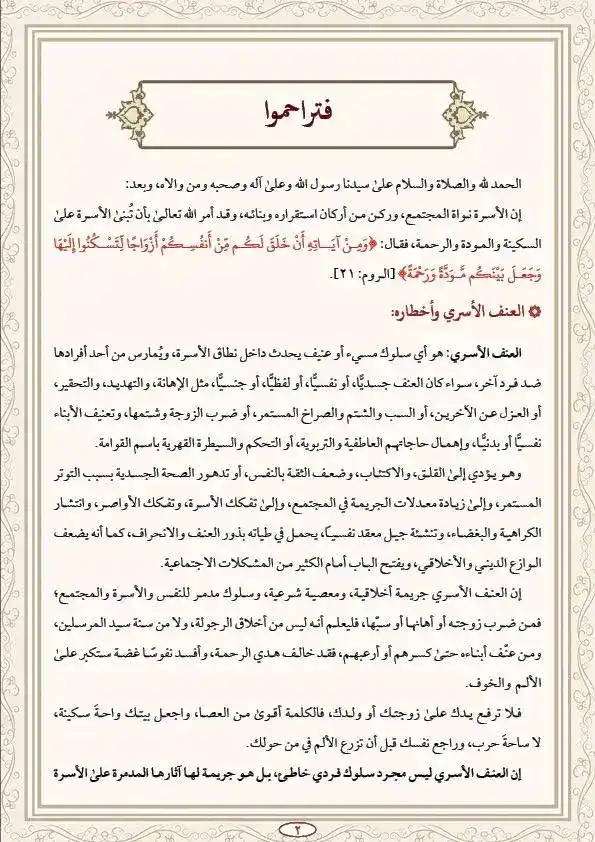 فتراحموا
الحمد لله والصلاة والسلام علىٰ سيدنا رسول الله وعلىٰ آله وصحبه ومن والاه، وبعد:
إن الأسرة نواة المجتمع، وركن من أركان استقراره وبنائه، وقد أمر الله تعالىٰ بأن تُبنىٰ الأسرة علىٰ
السكينة والمودة والرحمة، فقال: ﴿وَمِنْ آيَاتِهِ أَنْ خَلَقَ لَكُم مِّنْ أَنفُسِكُمْ أَزْوَاجًا لِّتَسْكُنُوا إِلَيْهَا
وَجَعَلَ بَيْنَكُم مَّوَدَّةً وَرَحْمَةً﴾ [الروم: ٢١].
العنف الأسري وأخطاره:
العنف الأسري: هو أي سلوك مسيء أو عنيف يحدث داخل نطاق الأسرة، ويُمارس من أحد أفرادها
ضد فرد آخر، سواء كان العنف جسديًّا، أو نفسيًّا، أو لفظيًّا، أو جنسيًّا، مثل الإهانة، والتهديد، والتحقير،
أو العزل عن الآخرين، أو السب والشتم والصراخ المستمر، أو ضرب الزوجة وشتمها، وتعنيف الأبناء
نفسيًّا أو بدنيًّا، وإهمال حاجاتهم العاطفية والتربوية، أو التحكم والسيطرة القهرية باسم القوامة.
وهو يؤدي إلىٰ القلق، والاكتئاب، وضعف الثقة بالنفس، أو تدهور الصحة الجسدية بسبب التوتر
المستمر، وإلىٰ زيادة معدلات الجريمة في المجتمع، وإلىٰ تفكك الأسرة، وتفكك الأواصر، وانتشار
الكراهية والبغضاء، وتنشئة جيل معقد نفسيًا، يحمل في طياته بذور العنف والانحراف، كما أنه يضعف
الوازع الديني والأخلاقي، ويفتح الباب أمام الكثير من المشكلات الاجتماعية.
إن العنف الأسري جريمة أخلاقية، ومعصية شرعية، وسلوك مدمر للنفس والأسرة والمجتمع؛
فمن ضرب زوجته أو أهانها أو سبّها، فليعلم أنه ليس من أخلاق الرجولة، ولا من سنة سيد المرسلين،
ومن عنّف أبناءه حتىٰ كسرهم أو أرعبهم، فقد خالف هدي الرحمة، وأفسد نفوسًا غضة ستكبر علىٰ
الألم والخوف.
فلا ترفع يدك علىٰ زوجتك أو ولدك، فالكلمة أقوىٰ من العصا، واجعل بيتك واحةَ سكينة،
لا ساحةَ حرب، وراجع نفسك قبل أن تزرع الألم في من حولك.
إن العنف الأسري ليس مجرد سلوك فردي خاطئ، بل هو جريمة لها آثارها المدمرة علىٰ الأسرة
٢